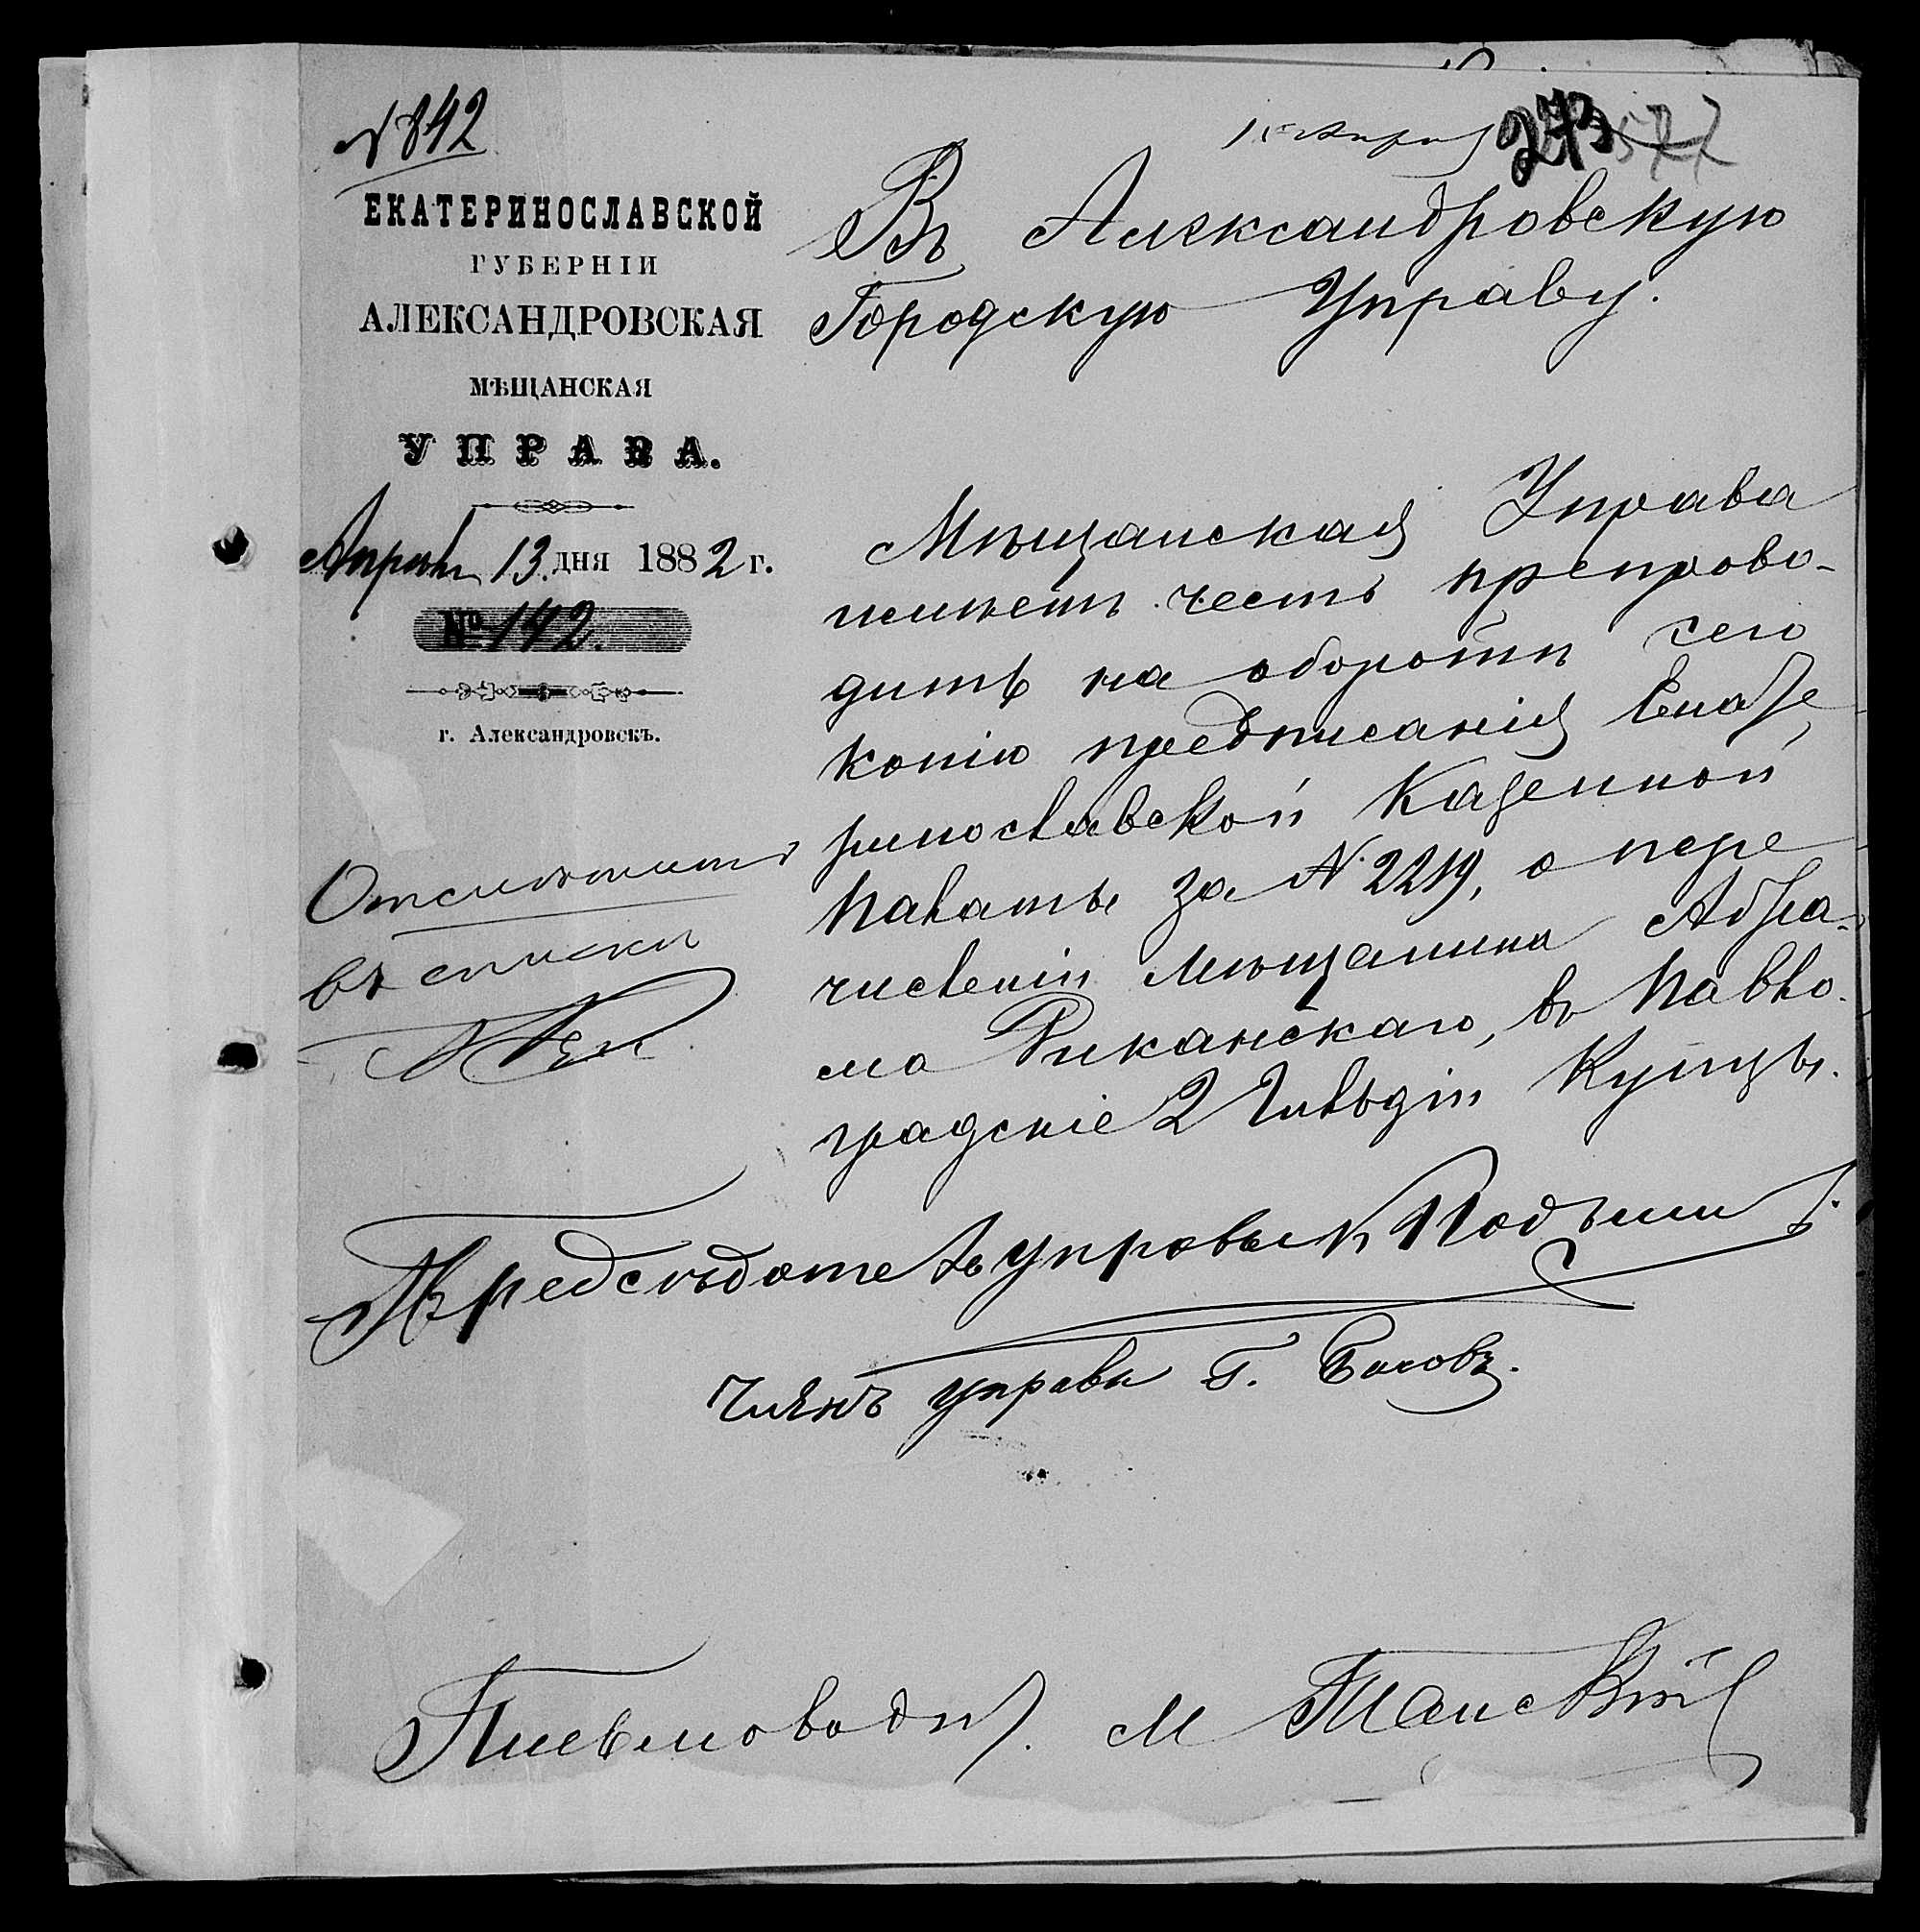 № 842
15 Апрѣля
273
ЕКАТЕРИНОСЛАВСКОЙ
ГУБЕРНІИ
АЛЕКСАНДРОВСКАЯ
МѢЩАНСКАЯ
УПРАВА.
Апрѣля 13 дня 1882 г.
№ 142.
г. Александровскъ.
Въ Александровскую
Городскую Управу.
Мѣщанская Управа
имѣетъ честь препрово-
дить на оборотѣ сего
копію предписанія Екате
ринославской Казенной
Палаты за № 2219, о пере
численіи мѣщанина Абра-
ма Риканскаго, въ Павло-
градскіе 2 Гильдіи Купцы.
Отмѣтить
въ списки
Предсѣдатель управы
Членъ управы Г. Быковъ.
Письмоводит. М